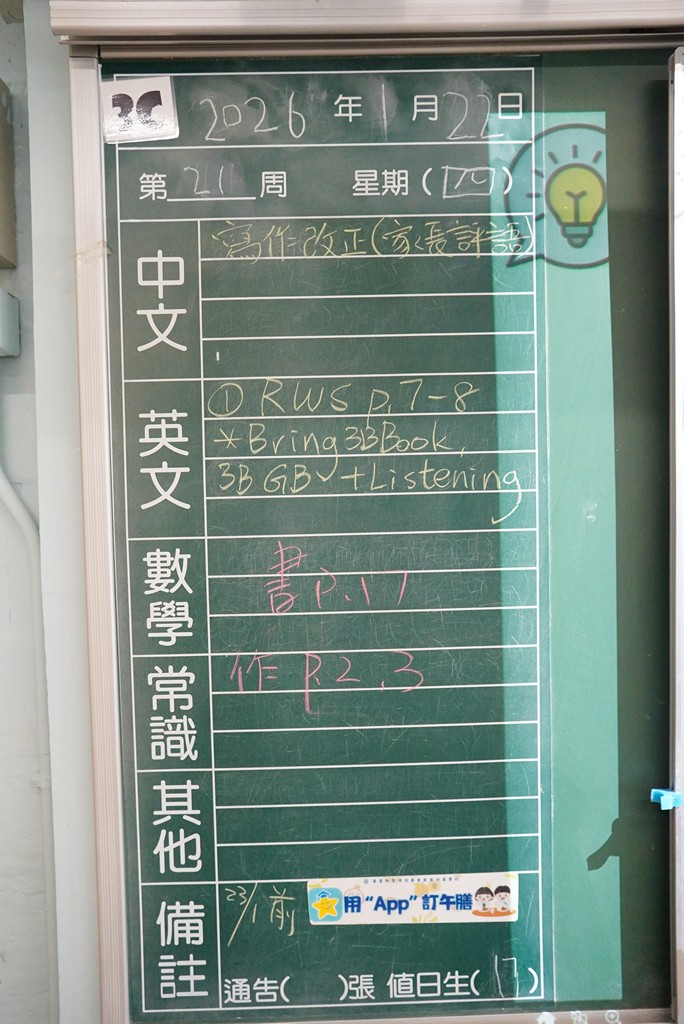 3C 2026 年 1 月 22 日
第 21 周 星期(四)
中文 寫作改正(家長評語)
英文 ① RWS p.7-8
*Bring 3B Book,
3B GB + Listening
數學 書 P.17
常識 作 P.2,3
其他
備註 23/1前 用“App”訂午膳
通告( )張 值日生(17)